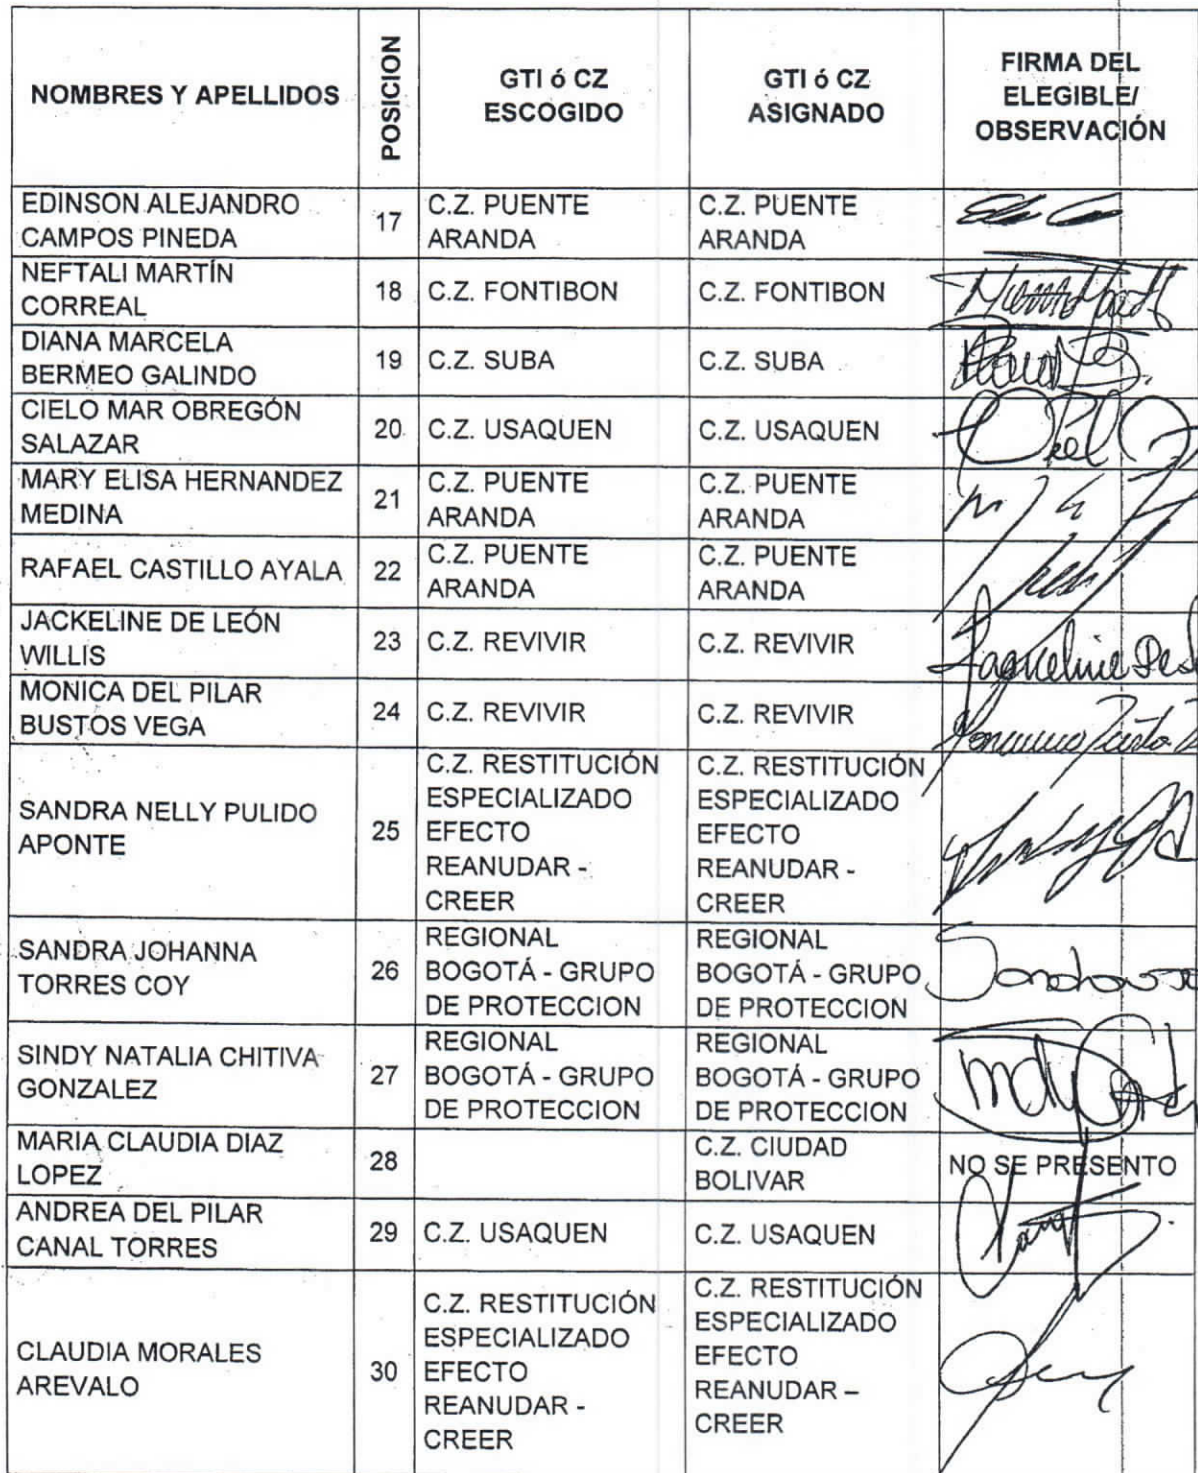 NOMBRES Y APELLIDOS
POSICION
GTI ó CZ
ESCOGIDO
GTI ó CZ
ASIGNADO
FIRMA DEL
ELEGIBLE/
OBSERVACIÓN
EDINSON ALEJANDRO
CAMPOS PINEDA
17
C.Z. PUENTE
ARANDA
C.Z. PUENTE
ARANDA
NEFTALI MARTÍN
CORREAL
18
C.Z. FONTIBON
C.Z. FONTIBON
DIANA MARCELA
BERMEO GALINDO
19
C.Z. SUBA
C.Z. SUBA
CIELO MAR OBREGÓN
SALAZAR
20
C.Z. USAQUEN
C.Z. USAQUEN
MARY ELISA HERNANDEZ
MEDINA
21
C.Z. PUENTE
ARANDA
C.Z. PUENTE
ARANDA
RAFAEL CASTILLO AYALA
22
C.Z. PUENTE
ARANDA
C.Z. PUENTE
ARANDA
JACKELINE DE LEÓN
WILLIS
23
C.Z. REVIVIR
C.Z. REVIVIR
Jaqueline
MONICA DEL PILAR
BUSTOS VEGA
24
C.Z. REVIVIR
C.Z. REVIVIR
SANDRA NELLY PULIDO
APONTE
25
C.Z. RESTITUCIÓN
ESPECIALIZADO
EFECTO
REANUDAR -
CREER
C.Z. RESTITUCIÓN
ESPECIALIZADO
EFECTO
REANUDAR -
CREER
SANDRA JOHANNA
TORRES COY
26
REGIONAL
BOGOTÁ - GRUPO
DE PROTECCION
REGIONAL
BOGOTÁ - GRUPO
DE PROTECCION
SINDY NATALIA CHITIVA
GONZALEZ
27
REGIONAL
BOGOTÁ - GRUPO
DE PROTECCION
REGIONAL
BOGOTÁ - GRUPO
DE PROTECCION
MARIA CLAUDIA DIAZ
LOPEZ
28
C.Z. CIUDAD
BOLIVAR
NO SE PRESENTO
ANDREA DEL PILAR
CANAL TORRES
29
C.Z. USAQUEN
C.Z. USAQUEN
CLAUDIA MORALES
AREVALO
30
C.Z. RESTITUCIÓN
ESPECIALIZADO
EFECTO
REANUDAR -
CREER
C.Z. RESTITUCIÓN
ESPECIALIZADO
EFECTO
REANUDAR –
CREER